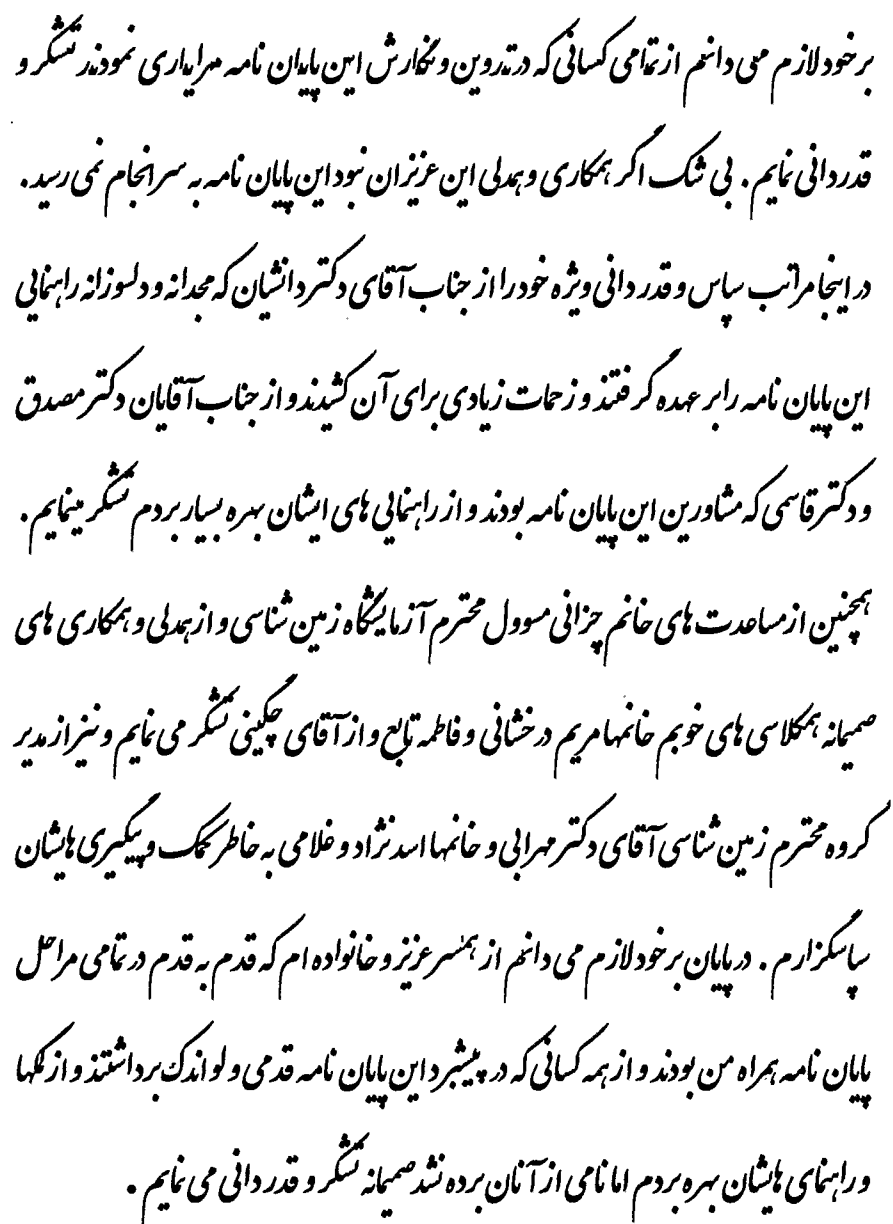 برخود لازم می دانم از تمامی کسانی که در تدوین و نگارش این پایان نامه مرا یاری نمودند تشکر و
قدردانی نمایم . بی شک اگر همکاری و همدلی این عزیزان نبود این پایان نامه به سرانجام نمی رسید .
در اینجا مراتب سپاس و قدردانی ویژه خود را از جناب آقای دکتر دانشیان که مجدانه و دلسوزانه راهنمایی
این پایان نامه را بر عهده گرفتند و زحمات زیادی برای آن کشیدند و از جناب آقایان دکتر مصدق
و دکتر قاسمی که مشاورین این پایان نامه بودند و از راهنمایی های ایشان بهره بسیار بردم تشکر مینمایم .
همچنین از مساعدت های خانم چزانی مسوول محترم آزمایشگاه زمین شناسی و از همدلی و همکاری های
صمیمانه همکلاسی های خوبم خانمها مریم درخشانی و فاطمه تابع و از آقای چگینی تشکر می نمایم و نیز از مدیر
گروه محترم زمین شناسی آقای دکتر مهرابی و خانمها اسدنژاد و غلامی به خاطر کمک و پیگیری هایشان
سپاسگزارم . در پایان برخود لازم می دانم از همسر عزیز و خانواده ام که قدم به قدم در تمامی مراحل
پایان نامه همراه من بودند و از همه کسانی که در پیشبرد این پایان نامه قدمی ولو اندک برداشتند و از کمکها
و راهنمای هایشان بهره بردم اما نامی از آنان برده نشد صمیمانه تشکر و قدردانی می نمایم .